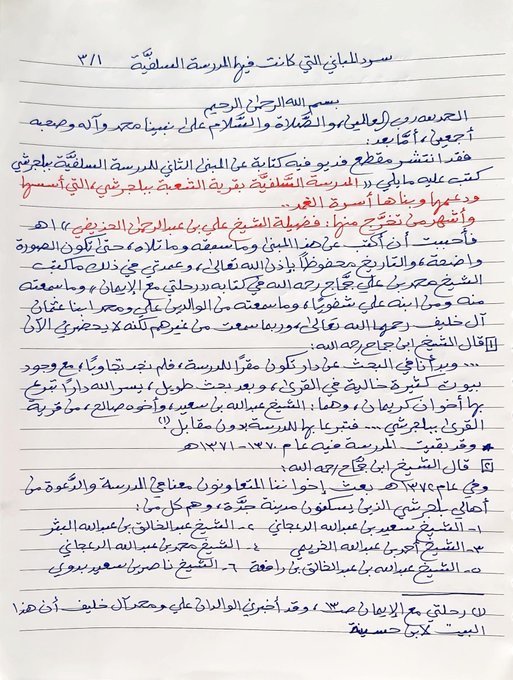 سرد للمباني التي كانت فيها المدرسة السلفيَّة ٣/١
بسم الله الرحمن الرحيم
الحمد لله رب العالمين، والصَّلاة والسَّلام على نبينا محمد وآله وصحبه
أجمعين، أمَّا بعد:
فقد انتشر مقطع فديو فيه كتابة عن المبنى الثاني للمدرسة السلفيَّة ببلجرشي
كتب عليه مايلي (( المدرسة السَّلفيَّة بقرية الشعبة ببلجرشي، التي أسسها
ودعمها وبناها أسرة الغمد...
وأشهر من تخرَّج منها: فضيلة الشيخ علي بن عبد الرحمن الحذيفي )) اهـ
فأحببت أن أكتب عن هذا المبنى وماسبقه وماتلاه، حتى تكون الصورة
واضحة، والتاريخ محفوظًا بإذن الله تعالى، وعمدتي في ذلك ماكتب
الشيخ محمد بن علي جمَّاح رحمه الله في كتابه ((رحلتي مع الإيمان))، وماسمعته
منه ومن ابنه علي شفويًا، وماسمعته من الوالدين علي ومحمد ابنا عثمان
آل خليف رحمها الله تعالى، وربما سمعت من غيرهم لكنه لا يحضرني الآن
١ قال الشيخ ابن جماح رحمه الله:
... وبدأنا في البحث عن دار تكون مقرًا للمدرسة، فلم نجد تجاوبًا، مع وجود
بيوت كثيرة خالية في القرى، وبعد بحث طويل، يسر الله دارًا تبرع
بها أخوان كريمان، وهما: الشيخ عبدالله بن سعيد، وأخوه صالح، من قرية
القرى ببلجرشي ... فتبرعا بها للمدرسة بدون مقابل (١)
وقد بقيت المدرسة فيه عام ١٣٧٠-١٣٧١هـ
٢ قال الشيخ ابن جمَّاح رحمه الله:
وفي عام ١٣٧٢هـ بعث إخواننا المتعاونون معنا في المدرسة والدَّعوة من
أهالي بلجرشي الذين يسكنون مدينة جدَّة، وهم كل من:
١- الشيخ سعيد بن عبدالله الدعجاني ٢- الشيخ عبدالخالق بن عبدالله البشر
٣- الشيخ أحمد بن عبدالله الخريمي ٤- الشيخ محمد بن عبدالله الدعجاني
٥- الشيخ عبدالله بن عبدالخالق بن رافعة ٦- الشيخ ناصر بن سعيد بدوي
(١) رحلتي مع الإيمان ص١٣، وقد أخبرني الوالدان علي ومحمد آل خليف أن هذا
البيت لابن حسينة